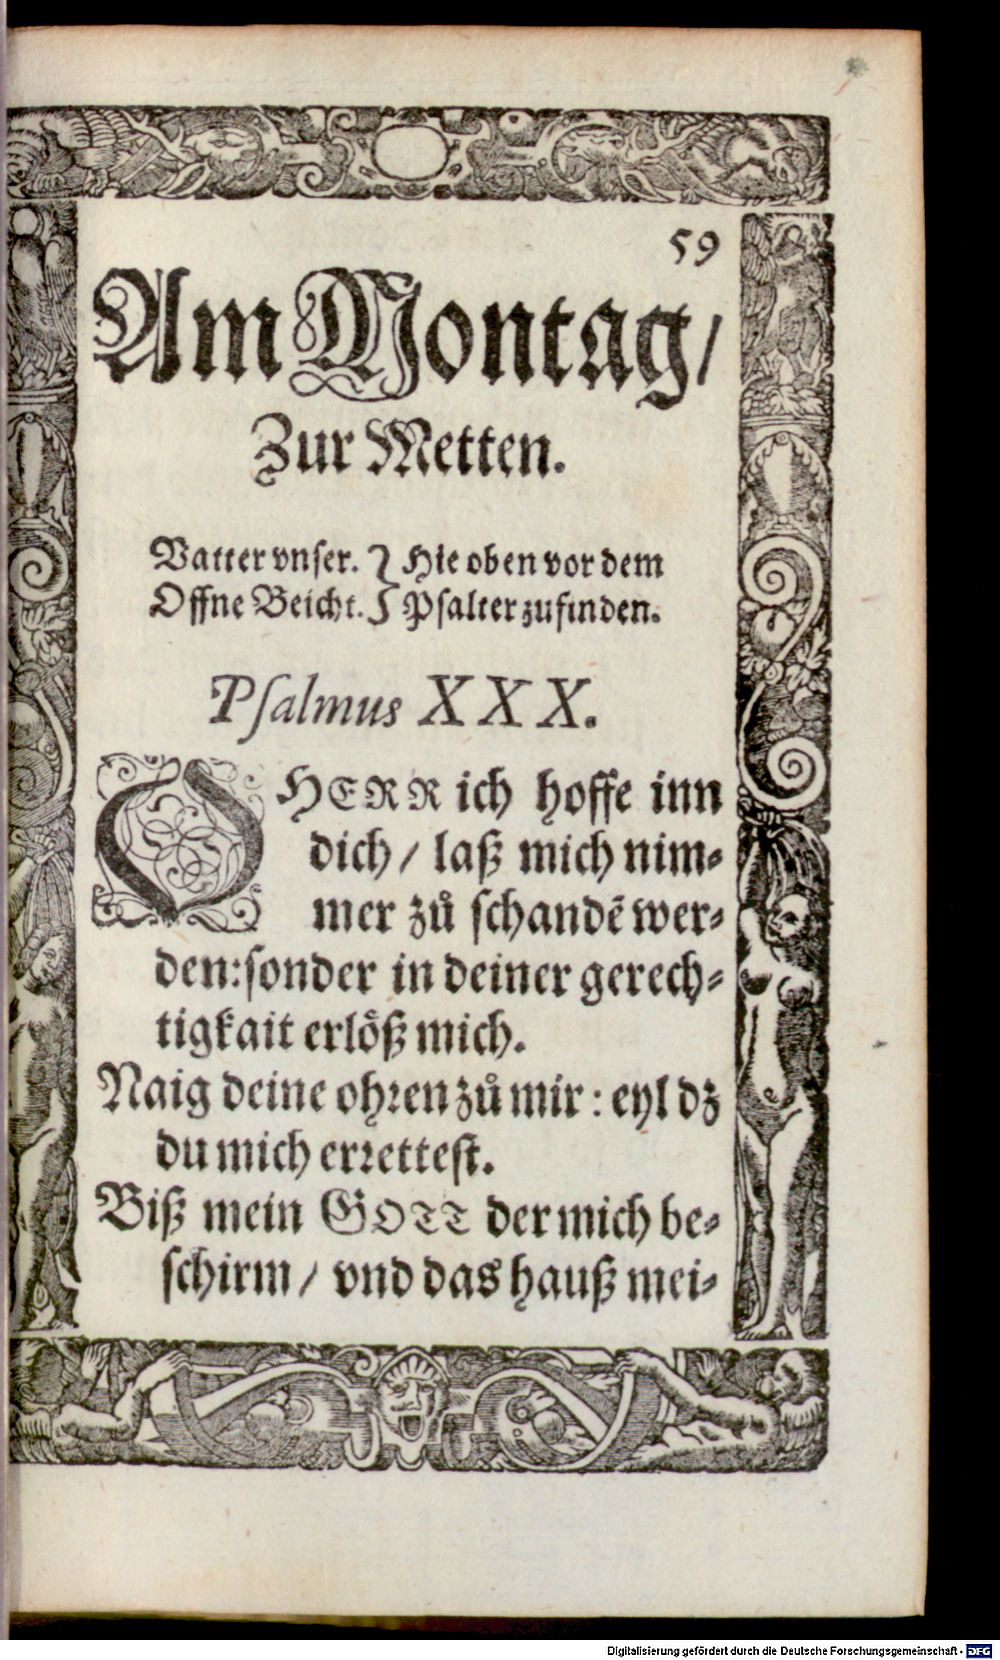 59
Am Montag/
Zur Metten.
Vatter vnser. } Hie oben vor dem
Offne Beicht. } Psalter zufinden.
Psalmus XXX.
O HERR ich hoffe inn
dich / laß mich nim⸗
mer zů schandē wer⸗
den: sonder in deiner gerech⸗
tigkait erlöß mich.
Naig deine ohꝛen zů mir : eyl dz
du mich erꝛettest.
Biß mein GOTT der mich be⸗
schirm / vnd das hauß mei⸗
Digitalisierung gefördert durch die Deutsche Forschungsgemeinschaft - DFG